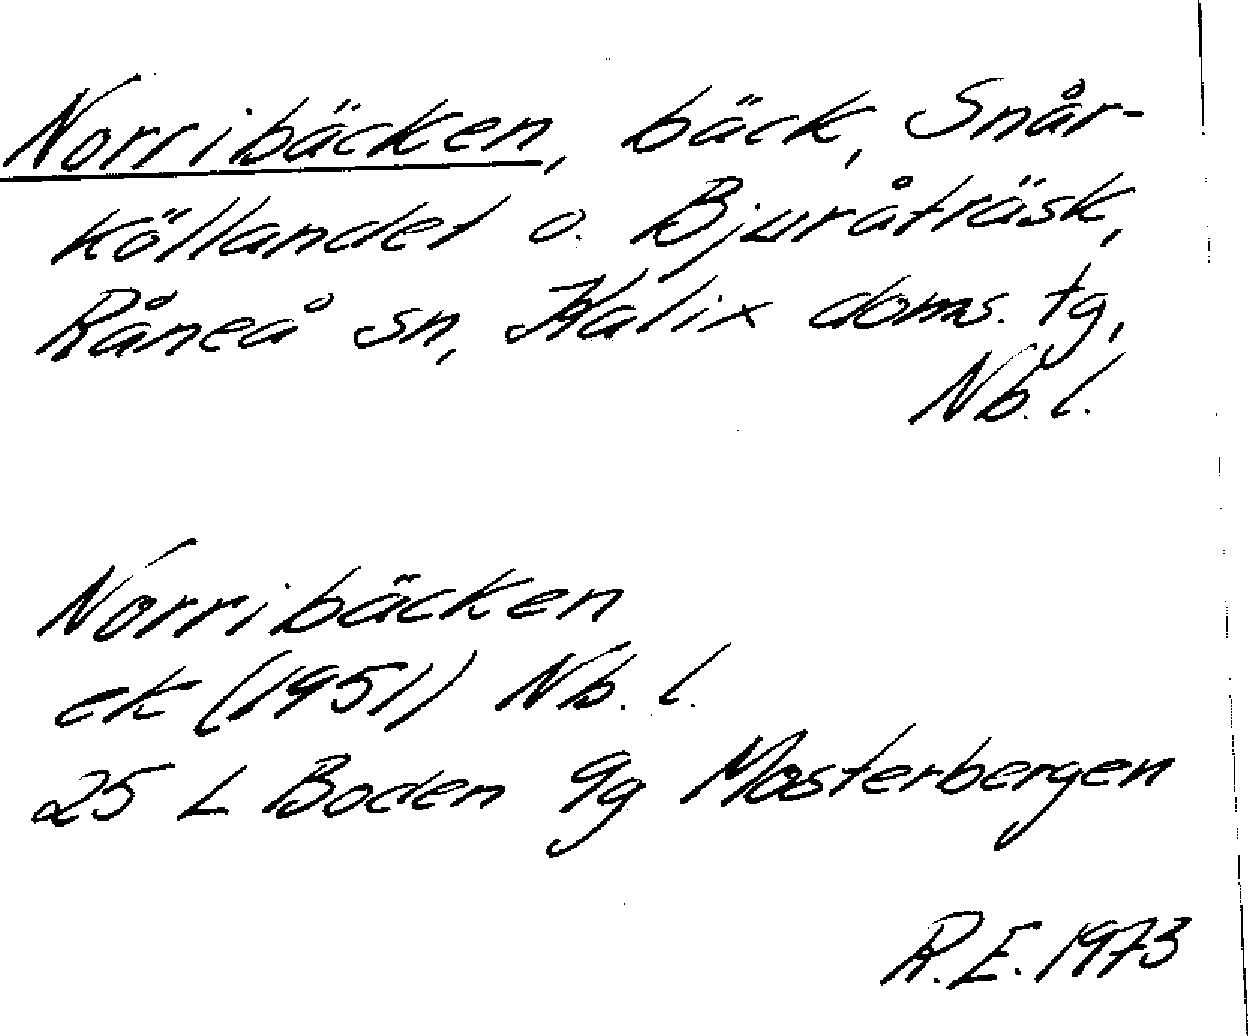 Norribäcken, bäck, Snår-
köllandet o. Bjuråträsk,
Råneå sn, Kalix doms. tg,
Nb. l.
Norribäcken
ek (1951) Nb. l.
25 L Boden 9g Mosterbergen
R.E. 1973